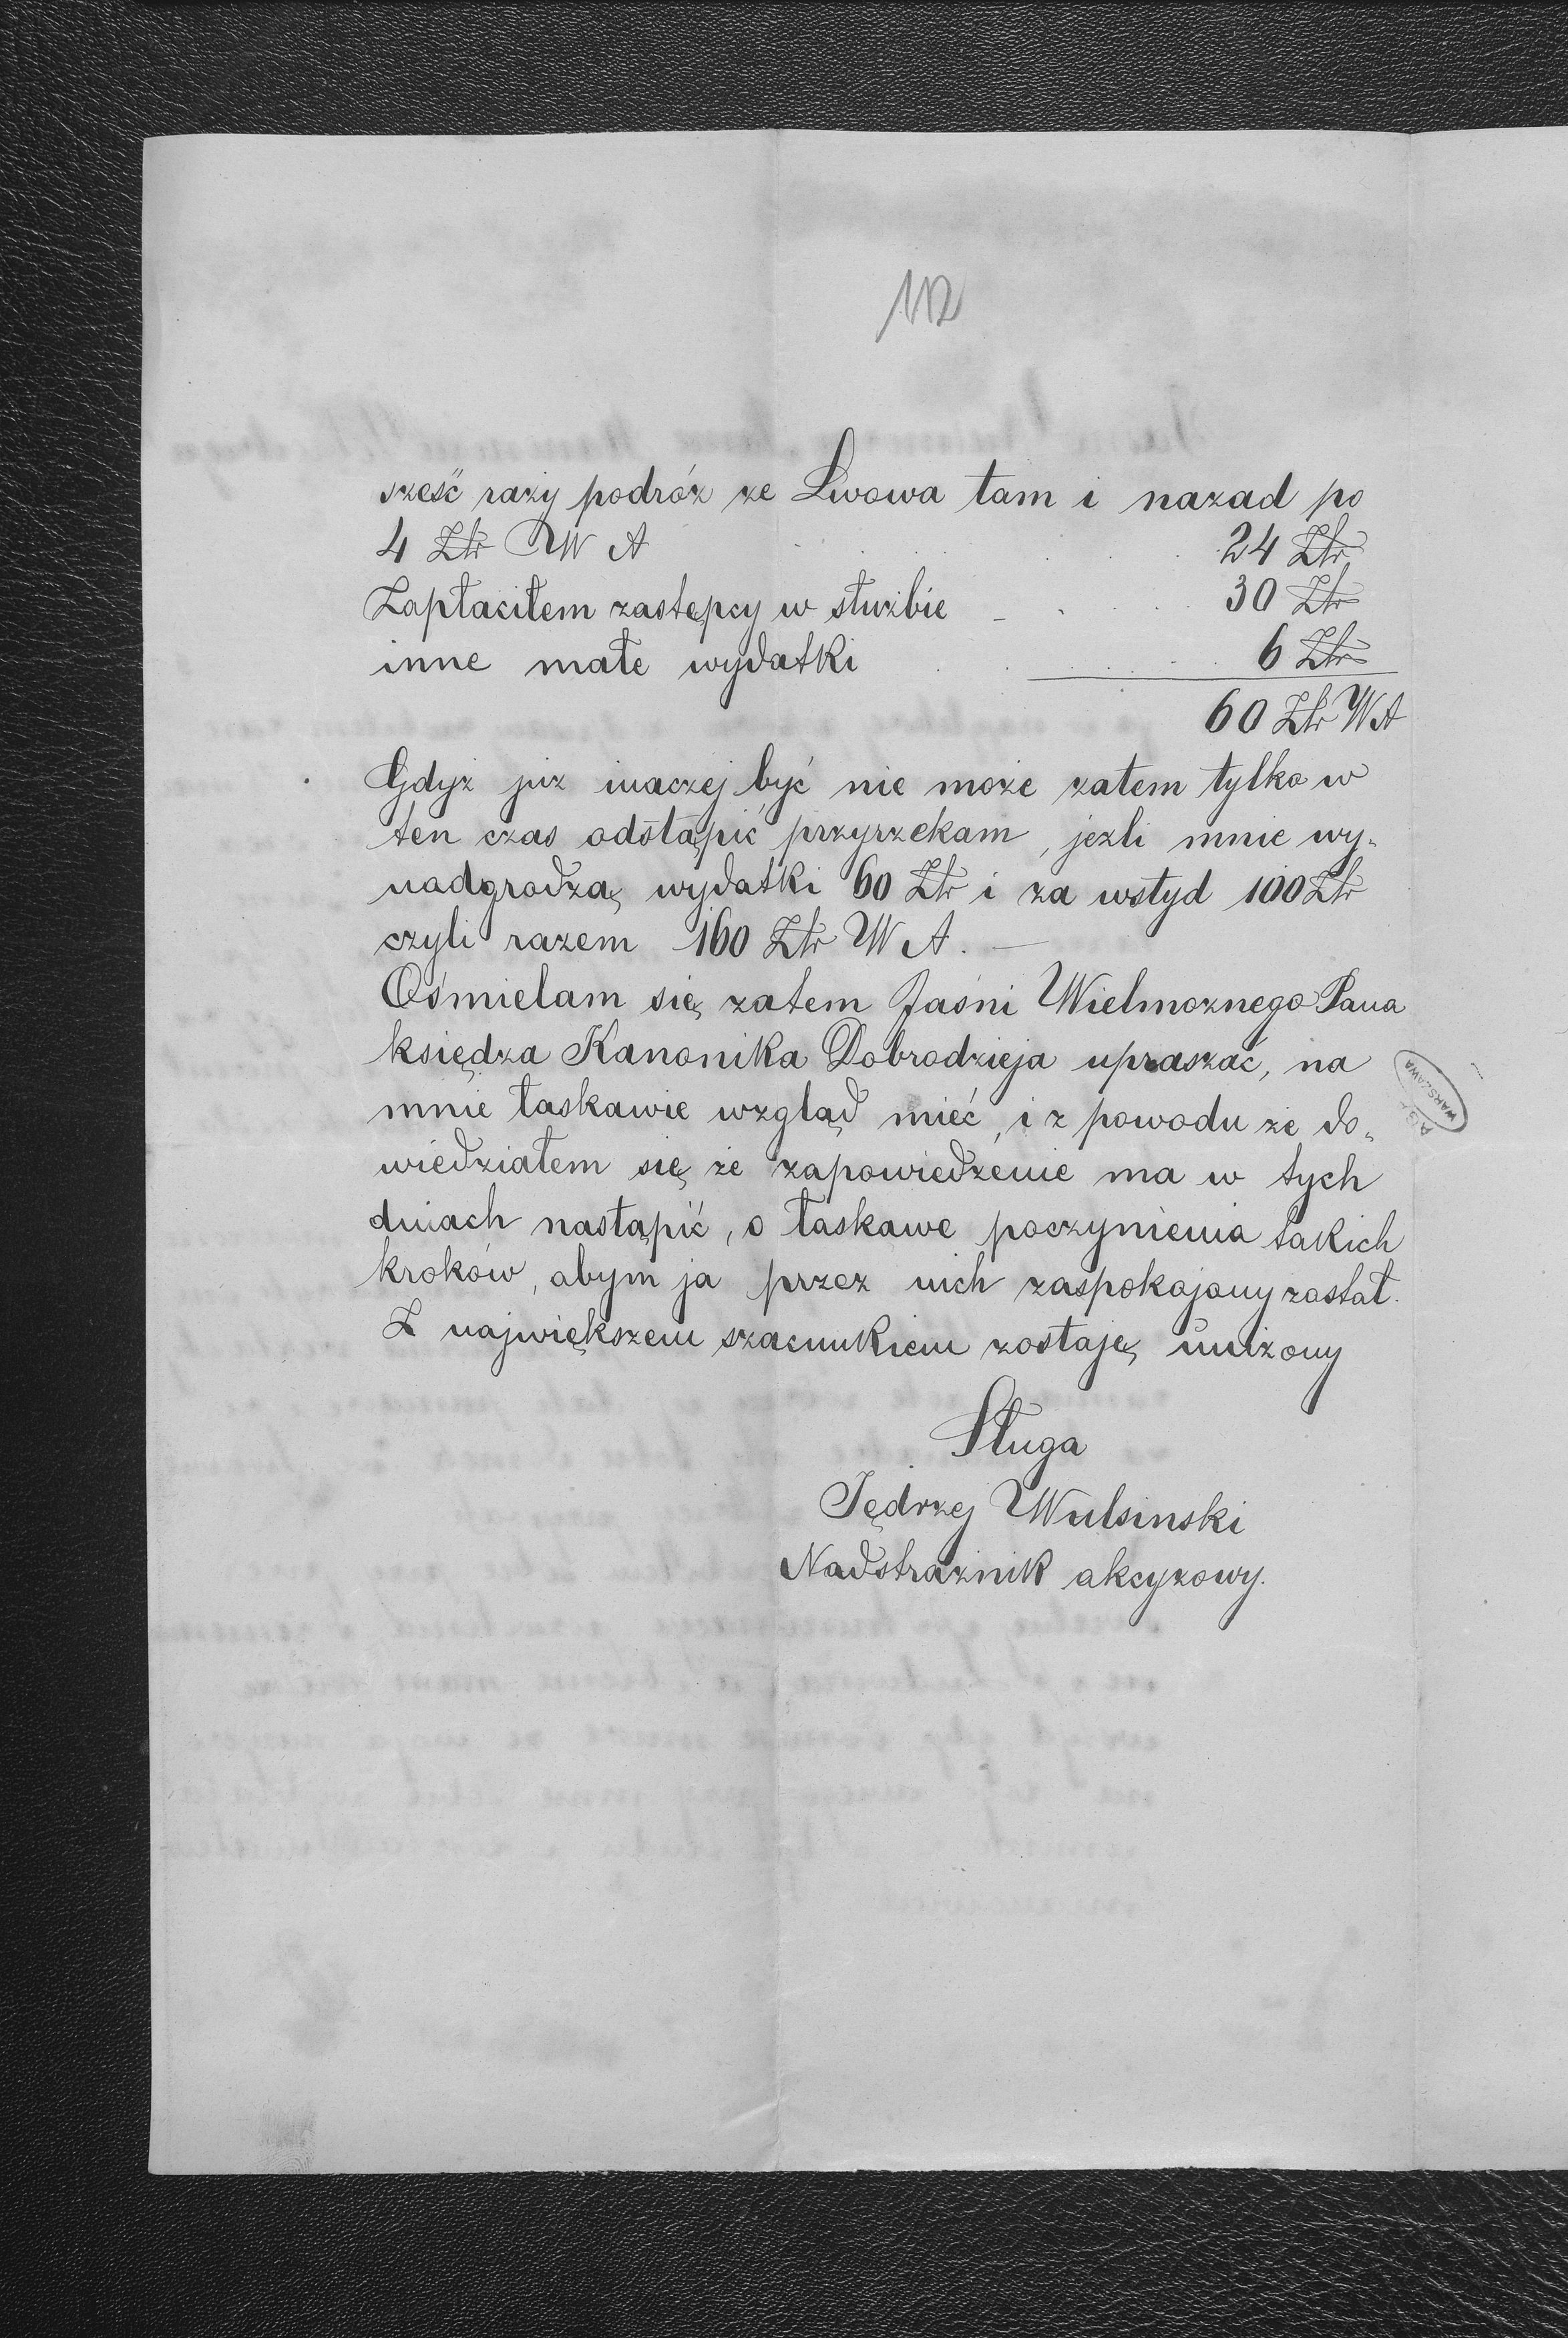 112
sześć razy podróż ze Lwowa tam i nazad po
4 Złr W A . . . . 24 Złr
Zapłaciłem zastępcy w służbie - . . . . 30 Złr
inne małe wydatki . . . . . 6 Złr
60 Złr W A
Gdyż już inaczej być nie może zatem tylko w
ten czas odstąpić przyrzekam, jeżli mnie wy-
nadgrodzą wydatki 60 Złr i za wstyd 100 Złr
czyli razem 160 Złr W A. —
Ośmielam się zatem Jaśni Wielmoznego Pana
księdza Kanonika Dobrodzieja upraszać, na
mnie łaskawie wzgląd mieć, i z powodu że do-
wiedziałem się że zapowiedzenie ma w tych
dniach nastąpić, o łaskawe poczynienia takich
kroków, abym ja przez nich zaspokajany zastał.
Z największem szacunkiem zostaję uniżony
Sługa
Jędrzej Wulsinski
Nadstrażnik akcyzowy.
WARSZAWA